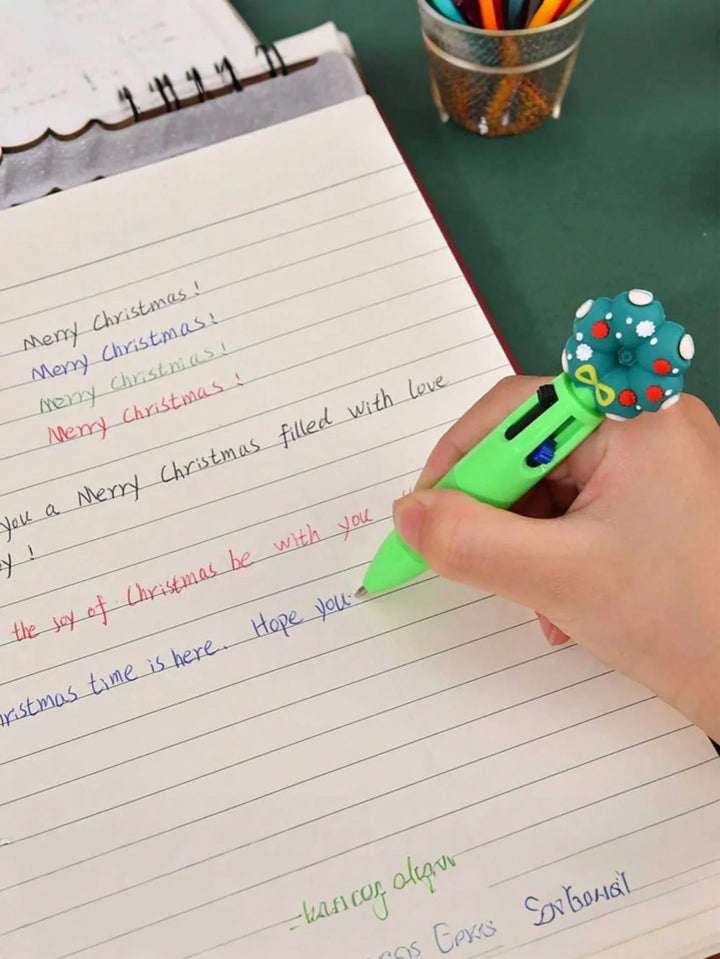 Merry Christmas!
Merry Christmas!
Merry Christmas!
Merry Christmas!
you a Merry Christmas filled with love
y!
the joy of Christmas be with you
ristmas time is here. Hope you